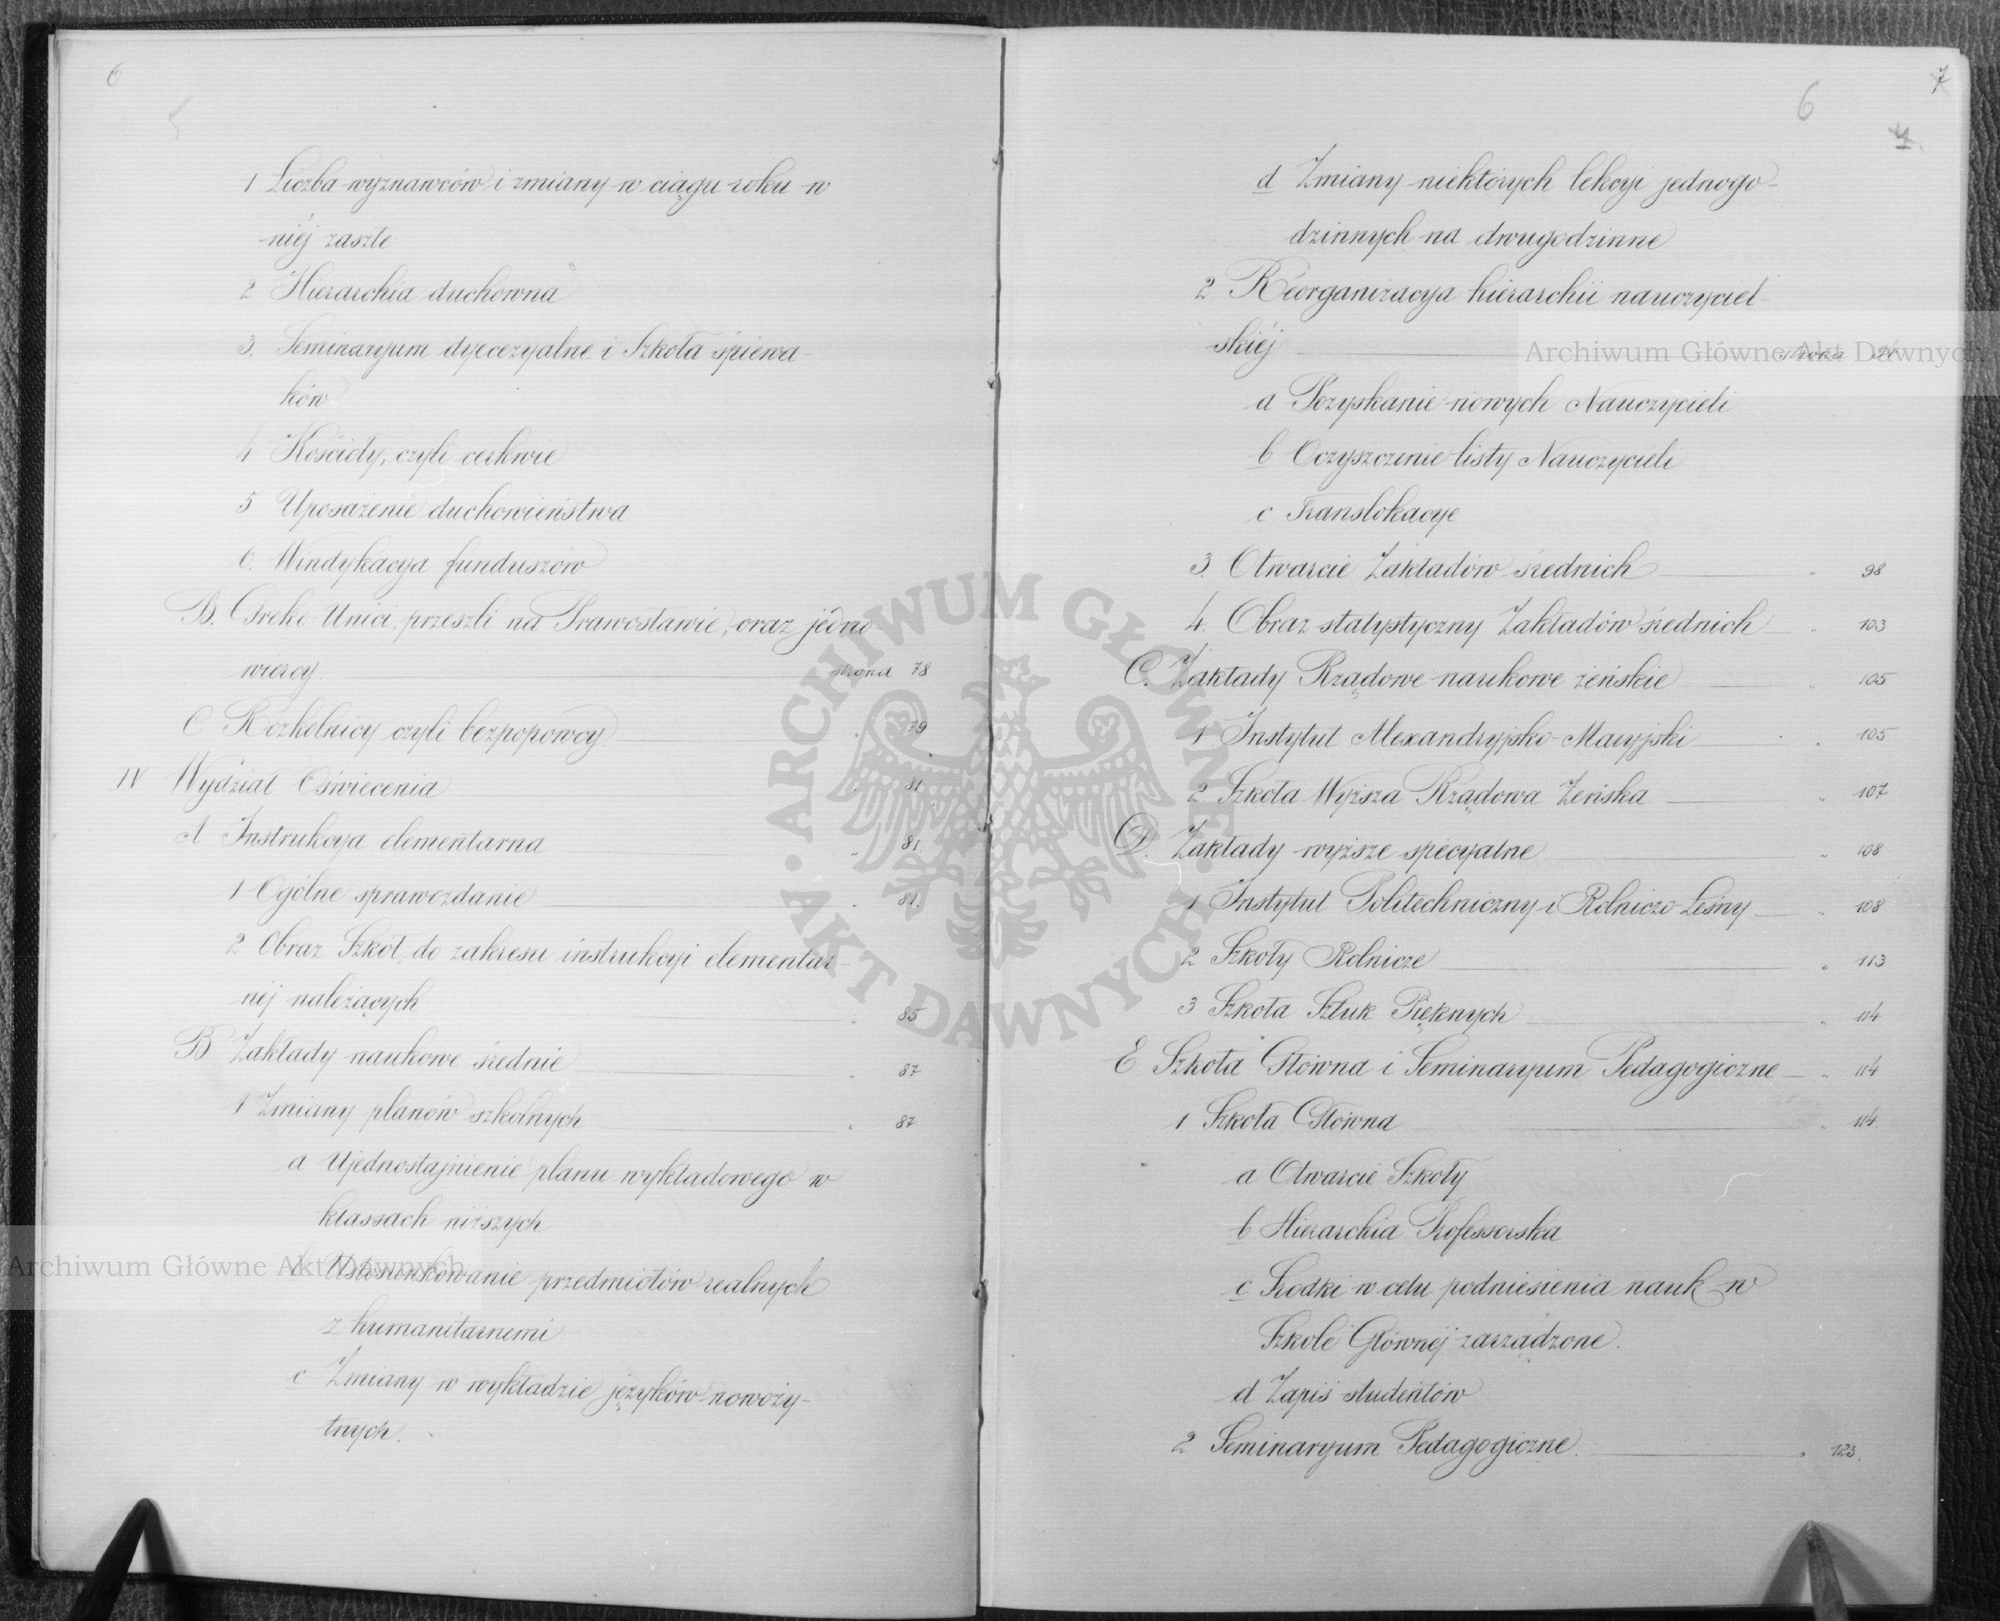 6
5
1 Liczba wyznawców i zmiany w ciągu roku w
niéj zaszłe
2 Hierarchia duchowna
3. Seminaryum dyecezyalne i Szkoła śpiewa-
ków
4 Kościoły, czyli cerkwie
5 Uposażenie duchowieństwa
6. Windykacya funduszów
B. Greko-Unici, przeszli na Prawosławie, oraz jedno-
wiercy. strona 78
C Rozkolnicy czyli bezpopowcy. " 79
IV Wydział Oświecenia " 81
A Instrukcya elementarna " 81.
1 Ogólne sprawozdanie " 81.
2 Obraz Szkół, do zakresu instrukcyi elementar-
néj należących " 85
B Zakłady naukowe średnie " 87
1 Zmiany planów szkolnych " 87
a Ujednostajnienie planu wykładowego w
klassach niższych
b Ustosunkowanie przedmiotów realnych
z humanitarnemi
c Zmiany w wykładzie języków nowoży-
tnych.
7
6
4.
d Zmiany niektórych lekcyi jednogo-
dzinnych na dwugodzinne
2 Reorganizacya hierarchii nauczyciel-
skiéj strona
a Pozyskanie nowych Nauczycieli
b Oczyszczenie listy Nauczycieli
c Translokacye
3. Otwarcie Zakładów średnich " 98
4. Obraz statystyczny Zakładów średnich " 103
C. Zakłady Rządowe naukowe żeńskie " 105
1 Instytut Alexandryjsko-Maryjski " 105
2 Szkoła Wyższa Rządowa Żeńska " 107
D. Zakłady wyższe specyalne " 108
1 Instytut Politechniczny i Rolniczo-Leśny " 108
2 Szkoły Rolnicze " 113
3 Szkoła Sztuk Pięknych " 114
E Szkoła Główna i Seminaryum Pedagogiczne " 114
1 Szkoła Główna " 114.
a Otwarcie Szkoły
b Hierarchia Professorska
c Środki w celu podniesienia nauk w
Szkole Głównéj zarządzone.
d Zapis studentów
2 Seminaryum Pedagogiczne. " 123.
Archiwum Główne Akt Dawnych
Archiwum Główne Akt Dawnych
ARCHIWUM GŁÓWNE AKT DAWNYCH · AKT DAWNYCH